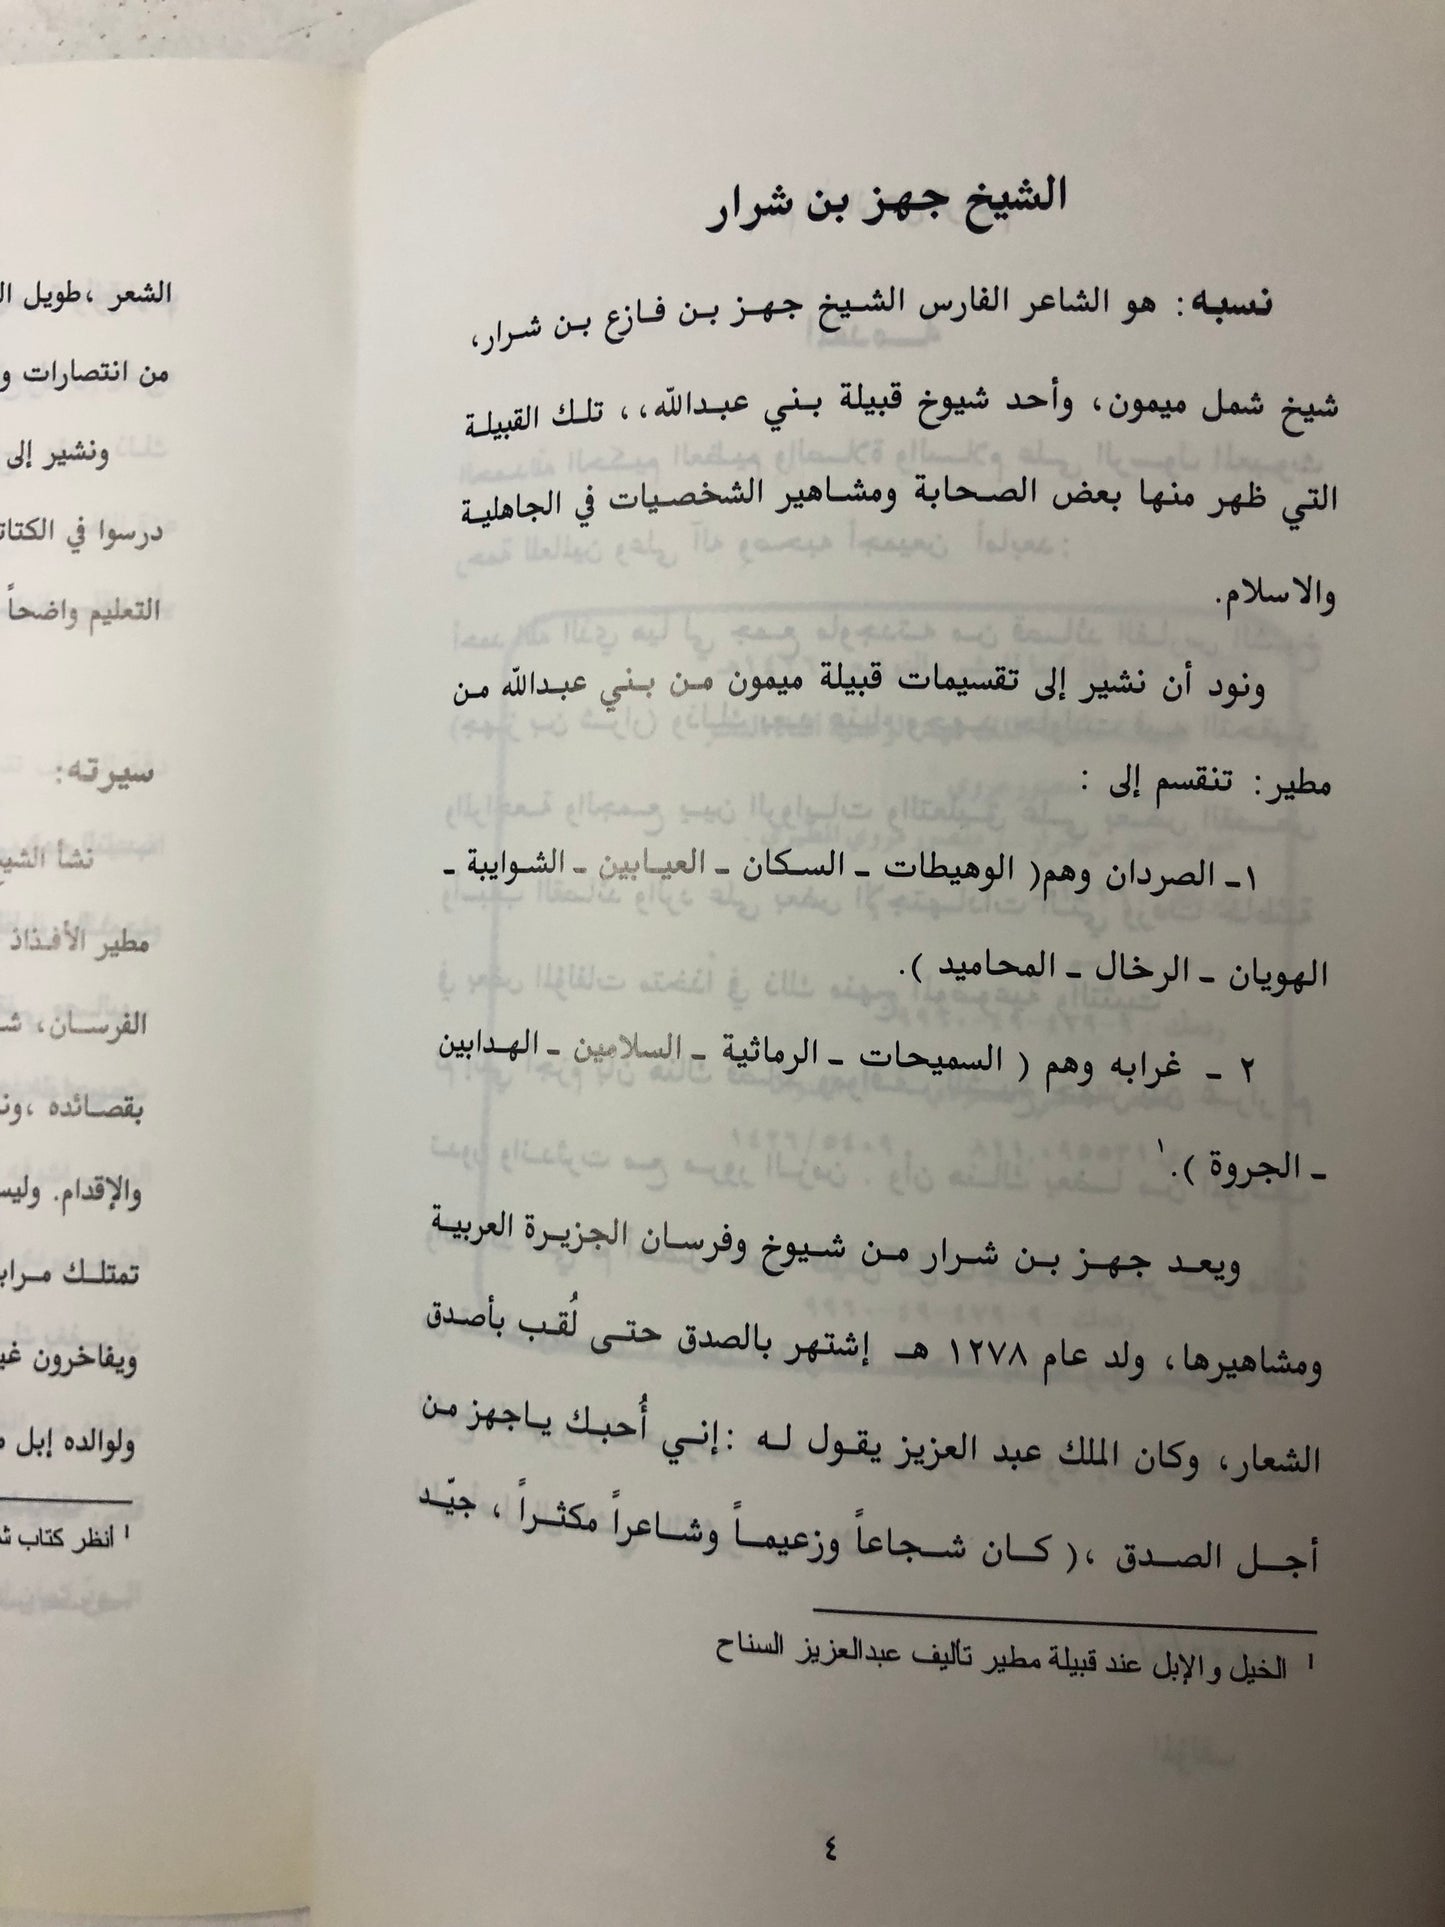 الشيخ جهز بن شرار
نسبه: هو الشاعر الفارس الشيخ جهز بن فازع بن شرار،
شيخ شمل ميمون، وأحد شيوخ قبيلة بني عبدالله،، تلك القبيلة
التي ظهر منها بعض الصحابة ومشاهير الشخصيات في الجاهلية
والاسلام.
ونود أن نشير إلى تقسيمات قبيلة ميمون من بني عبدالله من
مطير: تنقسم إلى :
١ـ الصردان وهم( الوهيطات ـ السكان ـ العيابين ـ الشوايبة ـ
الهويان ـ الرخال ـ المحاميد ).
٢ ـ غرابه وهم ( السميحات ـ الرماثية ـ السلامين ـ الهدابين
ـ الجروة ).١
ويعد جهز بن شرار من شيوخ وفرسان الجزيرة العربية
ومشاهيرها، ولد عام ١٢٧٨ هـ إشتهر بالصدق حتى لُقب بأصدق
الشعار، وكان الملك عبد العزيز يقول له :إني أُحبك ياجهز من
أجل الصدق ،( كان شجاعاً وزعيماً وشاعراً مكثراً ، جيّد
١ الخيل والإبل عند قبيلة مطير تأليف عبدالعزيز السناح
٤
الشعر ،طويل
من انتصارات
ونشير إلى
درسوا في
التعليم واضحاً
سيرته:
نشأ
مطير الأفذاذ
الفرسان،
بقصائده
والإقدام.
تمتلك
ويفاخرون
ولوالده إبل
١ أنظر كتاب